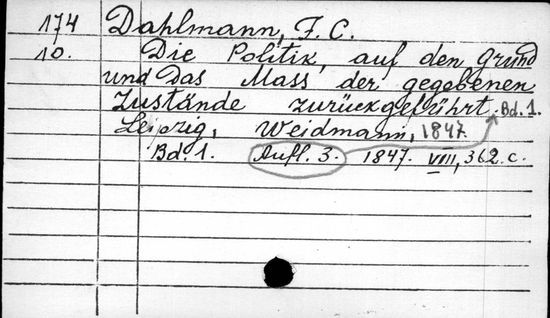 174 Dahlmann, F. C.
10. Die Politik, auf den Grund
und das Mass der gegebenen
Zustände zurückgeführt. Bd. 1.
Leipzig, Weidmann, 1847.
Bd. 1. Aufl. 3. 1847. VIII, 362 c.